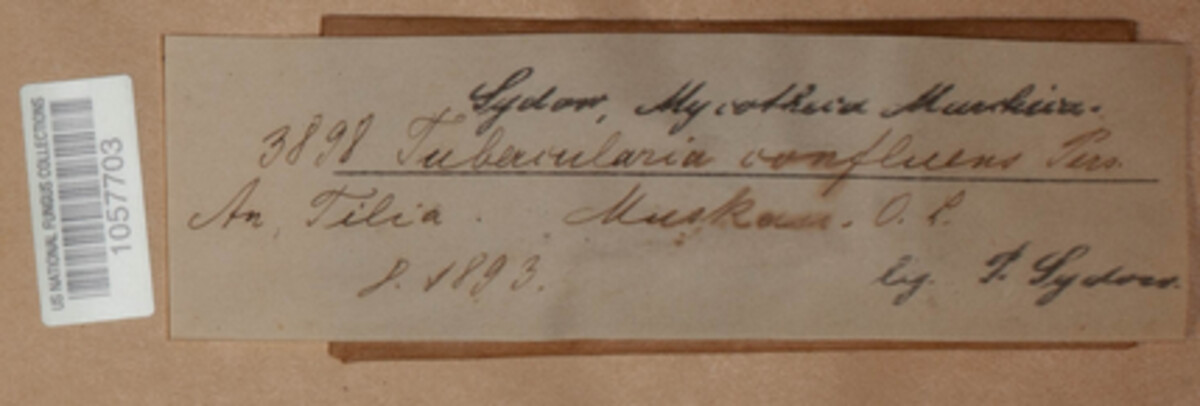 US NATIONAL FUNGUS COLLECTIONS
1057703
Sydow, Mycotheca Marchica.
3898 Tubercularia confluens Pers.
An Tilia. Muskau. O. L.
8. 1893.
leg. P. Sydow.